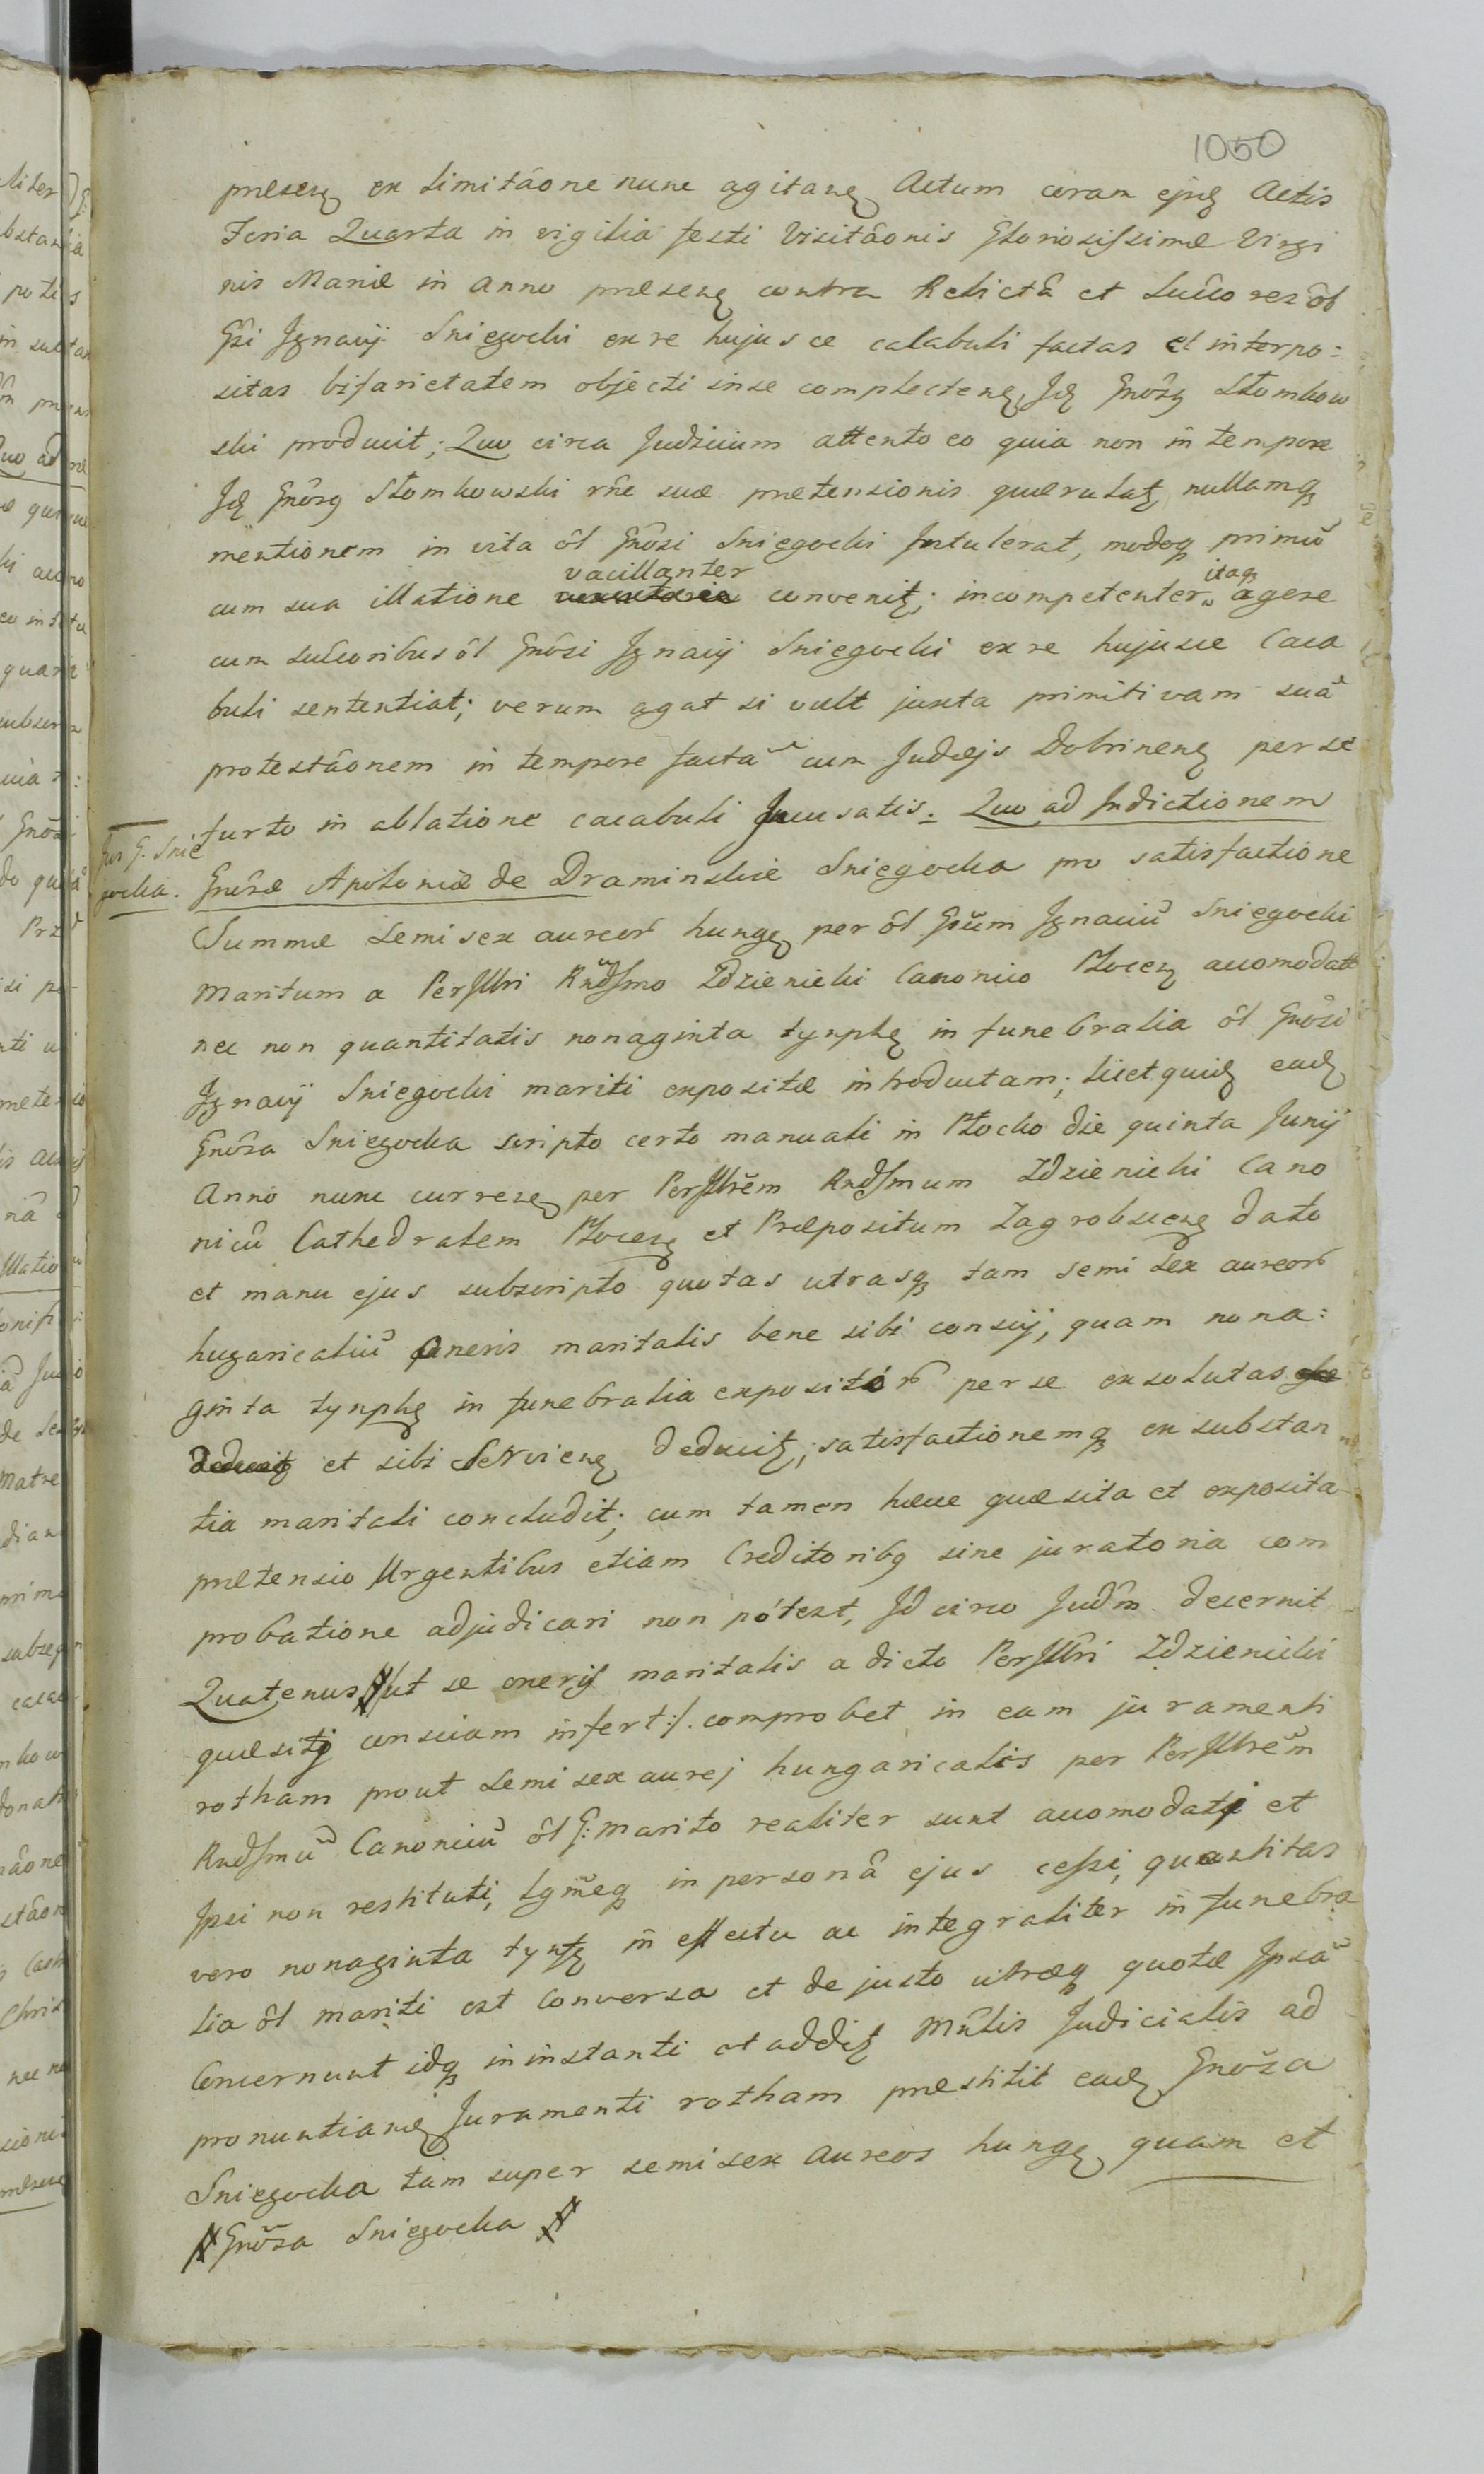 1050
præsenꝫ ex limitâone nunc agitanꝫ Actum coram ejusꝫ Actis
Feria Quarta in vigilia festi Visitâonis Gloriosissimæ Virgi
nis Mariæ in anno præsenꝫ contra Relictâ et Succores ôl
Gsi Ignacij Sniegocki ex re hujusce cacabuli factas et interpo:
sitas bifarietatem objecti in se complectenꝫ, Idꝫ Gnôsꝫ Słomkow
ski producit; Quo circa Judicium attento eo quia non in tempore
Idꝫ Gnôsꝫ Słomkowski rñe suæ prætensionis quærulatꝫ, nullamqꝫ
mentionem in vita ôl Gnôsi Sniegocki Intulerat, modoqꝫ primũ
vacillanter itaqꝫ
cum sua illatione convenitꝫ; incompetenter agere
cum succoribus ôl Gnôsi Ignacij Sniegocki ex re hujusce Caca
buli sententiat; verum agat si vult juxta primitivam suã
protestâonem in tempore factã cum Judæjs Dobrinenꝫ per se
furto in ablatione cacabuli Incusatis. Quo ad Indictionem
Jur. G. Snie
gocka.
Gnôsæ Apoloniæ de Draminskie Sniegocka pro satisfactione
Summæ Semisex aureor hungꝫ per ôl Gsũm Ignaciũ Sniegocki
Maritum a PerIllri Rndssmo Zdzienicki Canonico Płocenꝫ accomodatæ
nec non quantitatis nonaginta tynphꝫ in funebralia ôl Gnôsi
Ignacij Sniegocki mariti expositæ introductam; licet quidꝫ eadꝫ
Gnôsa Sniegocka scripto certo manuali in Płocko die quinta Junij
Anno nunc currenꝫ per PerIllrẽm Rndssmum Zdzienicki Cano
nicũ Cathedralem Płocenꝫ et Præpositum Zagrobscenꝫ dato
et manu ejus subscripto quotas utrasqꝫ tam semi sex aureor
hugaricaliũ oneris maritalis bene sibi conscij, quam nona:
ginta tynphꝫ in funebralia expositór per se exsolutas
et sibi Servienꝫ deducitꝫ; satisfactionemqꝫ ex substan
tia maritali concludit; cum tamen hæcce quæsita et exposita
prætensio Urgentibus etiam Creditoribꝫ sine juratoria com
probatione adjudicari non pótest, Id circo Judm̃ decernit
Quatenus # ut se oneris maritalis a dicto PerIllri Zdzienicki
quæsiti consciam infert :/. comprobet in eam juramenti
rotham prout Semisex aurej hungaricales per PerIllrẽm
Rndssmũ Canonicũ ôl G: marito realiter sunt accomodati et
Ipsi non restituti, lgmẽqꝫ in personã ejus cessi, quantitas
vero nonaginta tynfꝫ in effectu ac integraliter in funebra
lia ôl mariti est conversa et de justo utræqꝫ quotæ Ipsã
Concernunt idqꝫ in instanti ad additꝫ Mñlis Judicialis ad
pronuntianꝫ Juramenti rotham præstitit eadꝫ Gnôsa
Sniegocka tam super semisex aureos hungꝫ quam et
# Gnôsa Sniegocka #